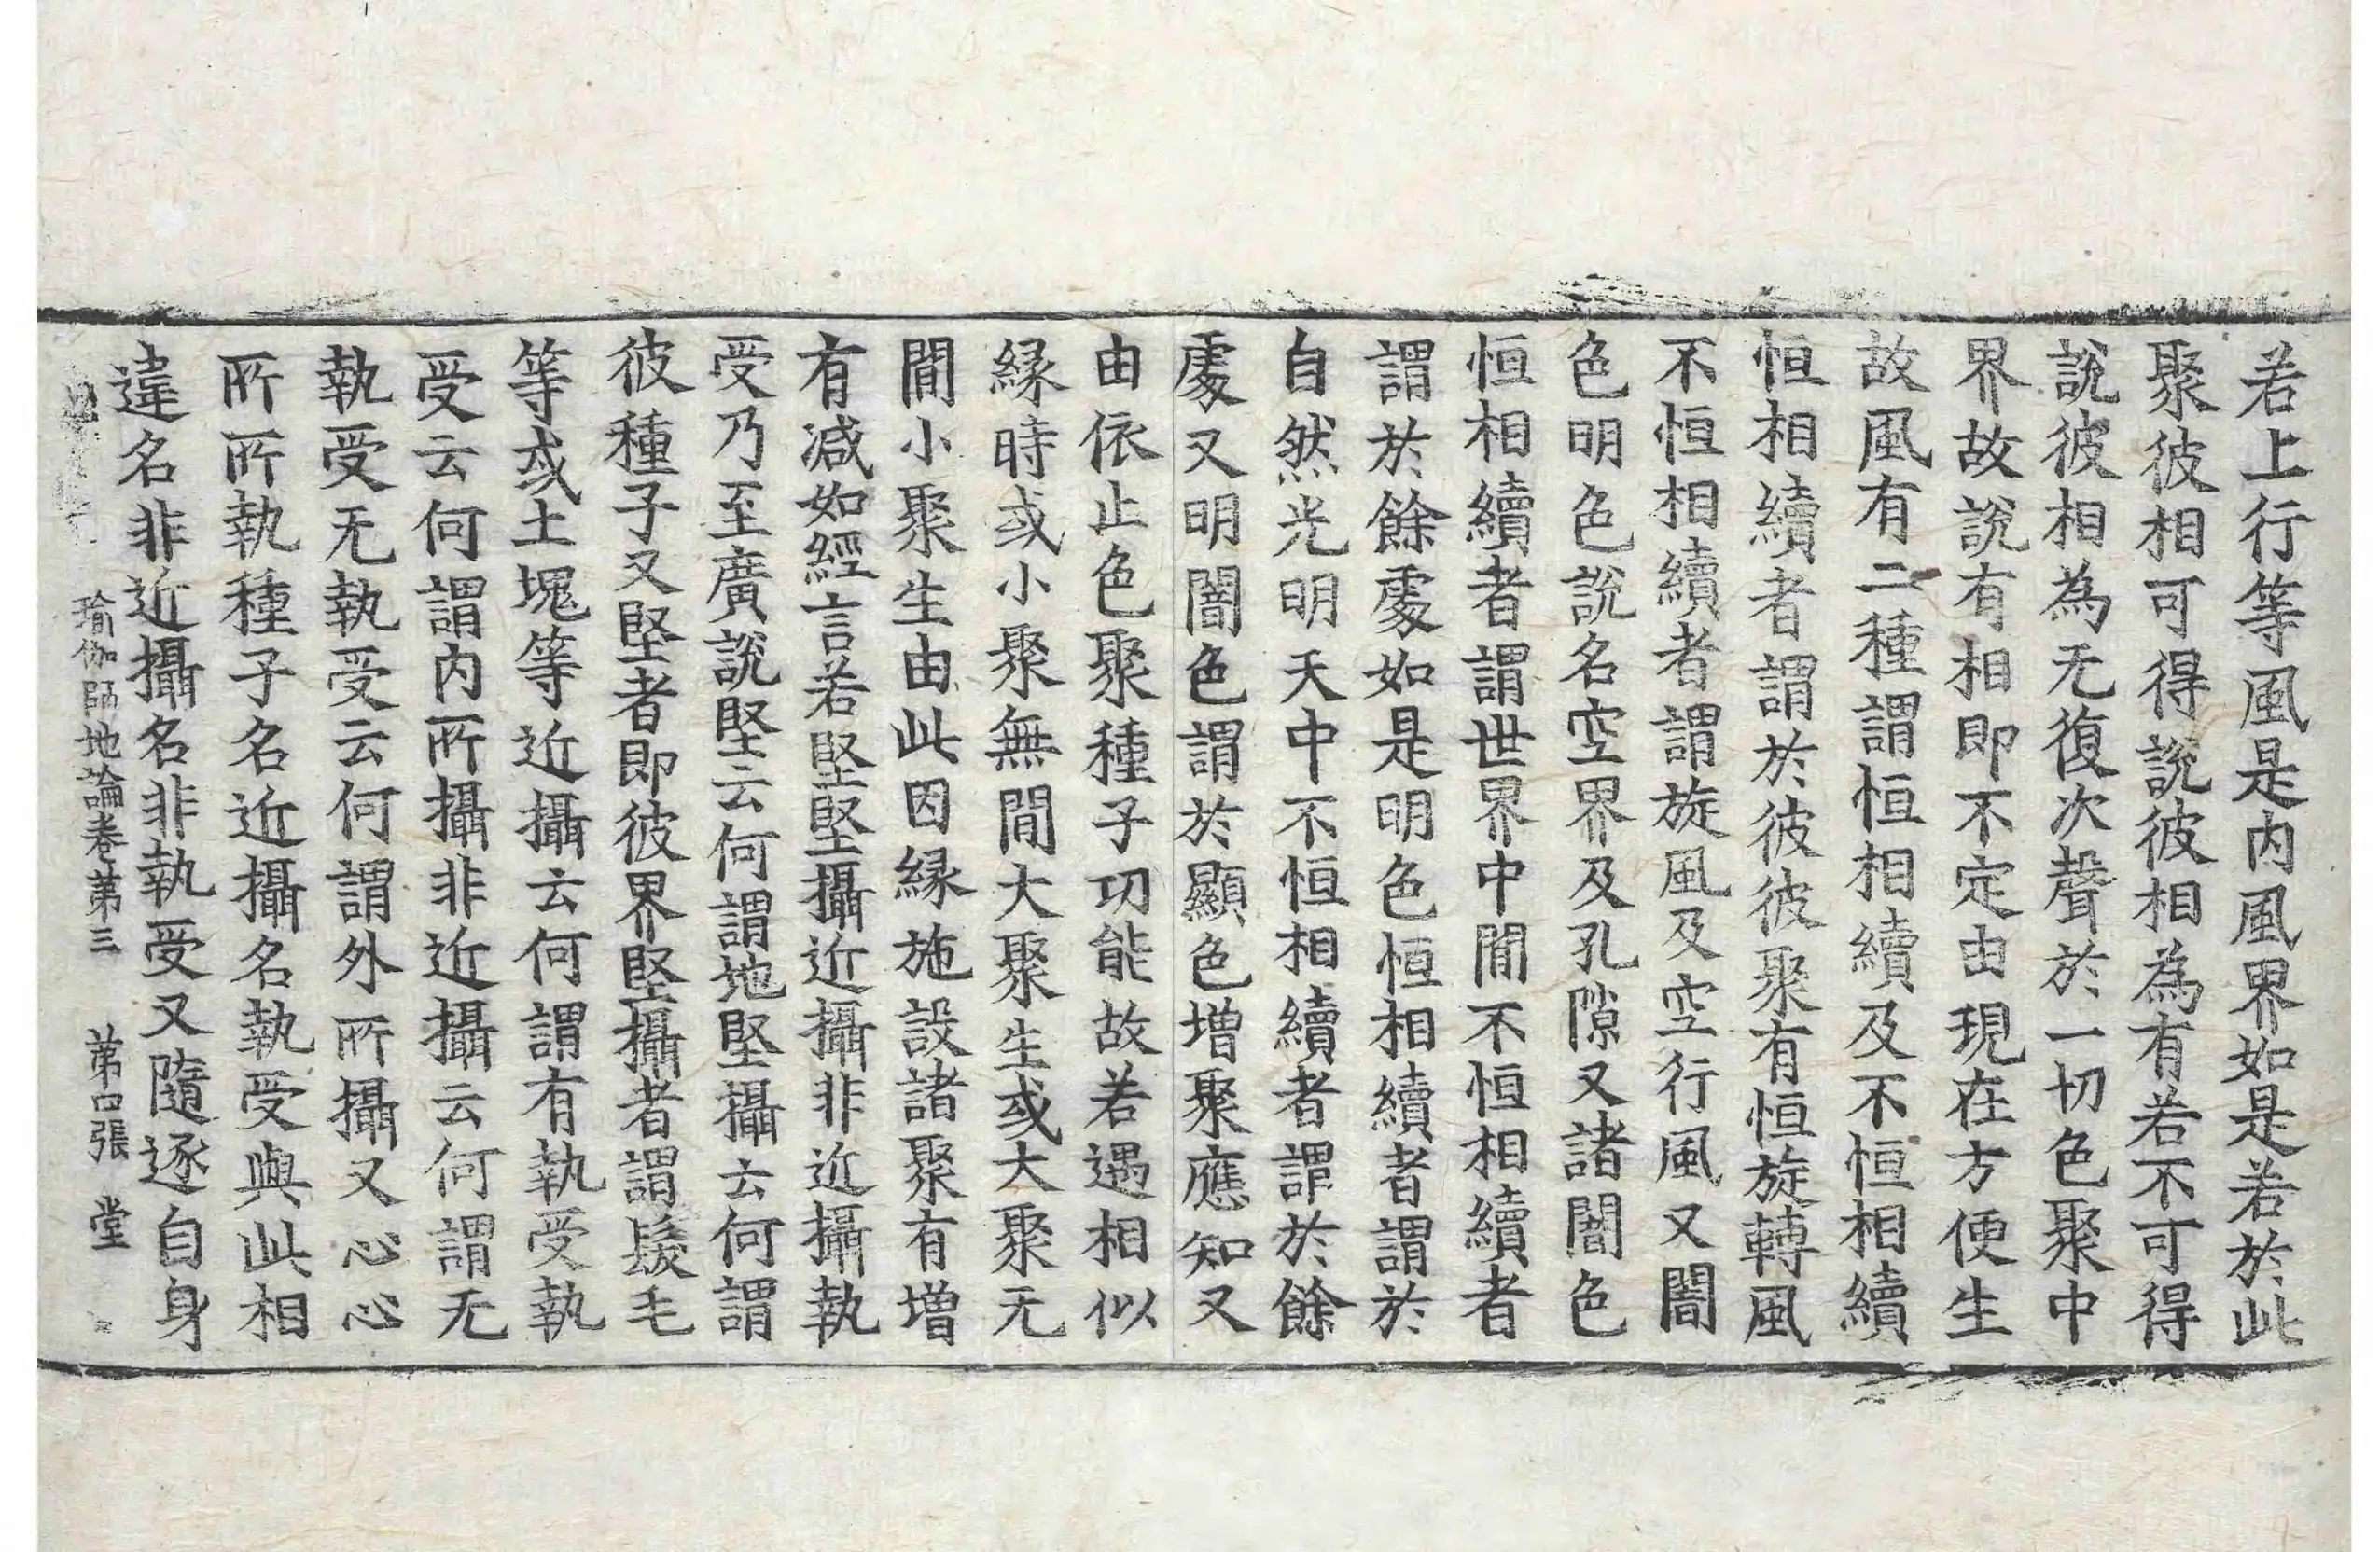 若上行等風是内風界如是若於此
聚彼相可得說彼相為有若不可得
說彼相為无復次聲於一切色聚中
界故說有相即不定由現在方便生
故風有二種謂恒相續及不恒相續
恒相續者謂於彼彼聚有恒旋轉風
不恒相續者謂旋風及空行風又闇
色明色說名空界及孔隙又諸闇色
恒相續者謂世界中間不恒相續者
謂於餘處如是明色恒相續者謂於
自然光明天中不恒相續者謂於餘
處又明闇色謂於顯色增聚應知又
由依止色聚種子功能故若遇相似
縁時或小聚無間大聚生或大聚无
間小聚生由此因縁施設諸聚有增
有减如經言若堅堅攝近攝非近攝執
受乃至廣說堅云何謂地堅攝云何謂
彼種子又堅者即彼界堅攝者謂髮毛
等或土塊等近攝云何謂有執受執
受云何謂内所攝非近攝云何謂无
執受无執受云何謂外所攝又心心
所所執種子名近攝名執受與此相
違名非近攝名非執受又隨逐自身
瑜伽師地論卷第三 第口張 堂